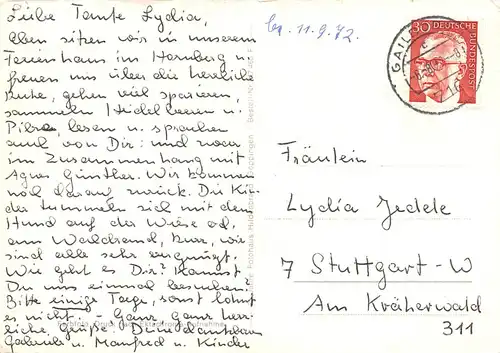 Liebe Tante Lydia,
Eben sitzen wir in unserem
Ferienhaus im Hornberg u.
freuen uns über die herrliche
Ruhe, gehen viel spazieren,
sammeln Heidelbeeren u.
Pilze, lesen u. sprachen
auch von Dir: und zwar
im Zusammenhang mit
Agnes Günther. Wir kommen
noch darauf zurück. Die Kin-
der tummeln sich mit dem
Hund auf der Wiese od.
am Waldrand, kurz, wir
sind alle sehr vergnügt.
Wie geht es Dir? Kannst
Du uns einmal besuchen?
Bitte einige Tage, sonst lohnt
es nicht. - Ganz ganz herz-
liche Grüße. Deine dankbaren
Gabriele u. Manfred u. Kinder
11.9.72.
30
DEUTSCHE
BUNDESPOST
GAIL
Fräulein
Lydia Jedele
7 Stuttgart-W
Am Kräherwald
311